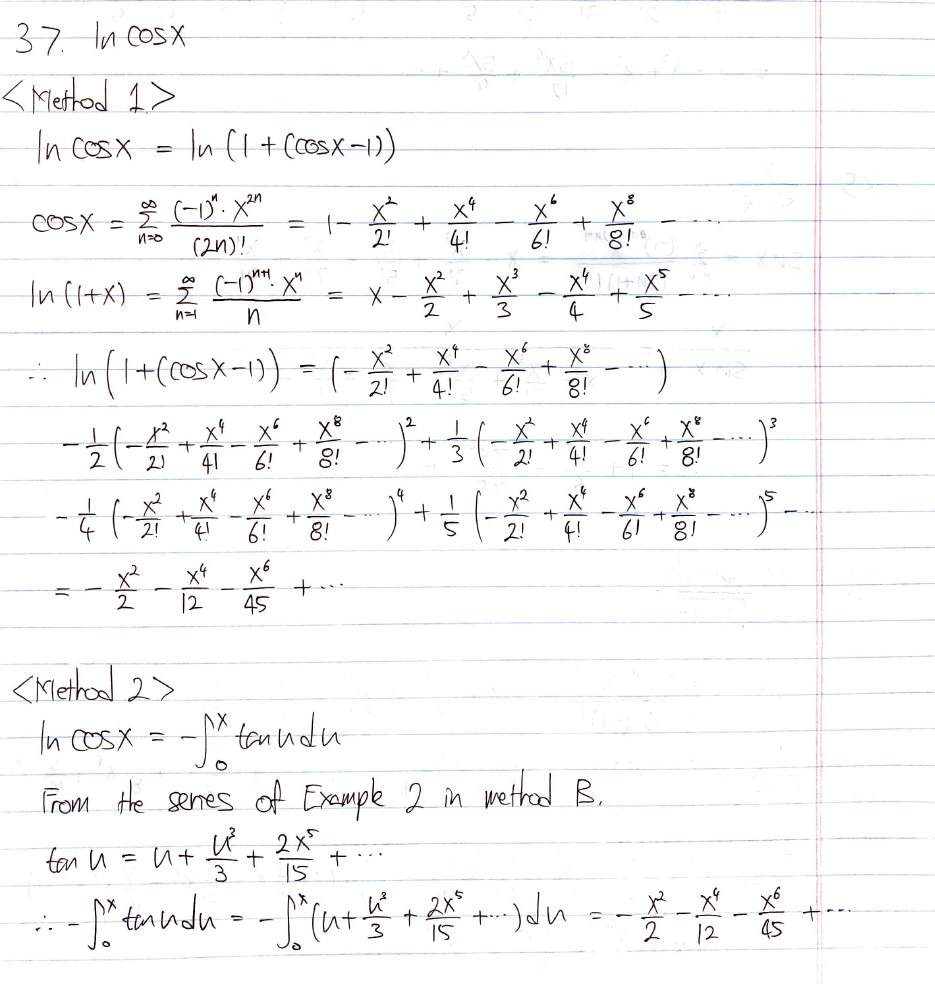 37. ln cosx
<Method 1>
ln cosx = ln (1+(cosx-1))
cosx = ∑_{n=0}^{∞} (-1)^n · x^{2n} / (2n)! = 1 - x^2/2! + x^4/4! - x^6/6! + x^8/8! - ...
ln (1+x) = ∑_{n=1}^{∞} (-1)^{n+1} · x^n / n = x - x^2/2 + x^3/3 - x^4/4 + x^5/5 - ...
∴ ln (1+(cosx-1)) = (-x^2/2! + x^4/4! - x^6/6! + x^8/8! - ...)
-1/2 (-x^2/2! + x^4/4! - x^6/6! + x^8/8! - ...)^2 + 1/3 (-x^2/2! + x^4/4! - x^6/6! + x^8/8! - ...)^3
-1/4 (-x^2/2! + x^4/4! - x^6/6! + x^8/8! - ...)^4 + 1/5 (-x^2/2! + x^4/4! - x^6/6! + x^8/8! - ...)^5 - ...
= -x^2/2 - x^4/12 - x^6/45 + ...
<Method 2>
ln cosx = -∫_0^x tan u du
From the series of Example 2 in method B.
tan u = u + u^3/3 + 2x^5/15 + ...
∴ -∫_0^x tan u du = -∫_0^x (u + u^3/3 + 2x^5/15 + ...) du = -x^2/2 - x^4/12 - x^6/45 + ...